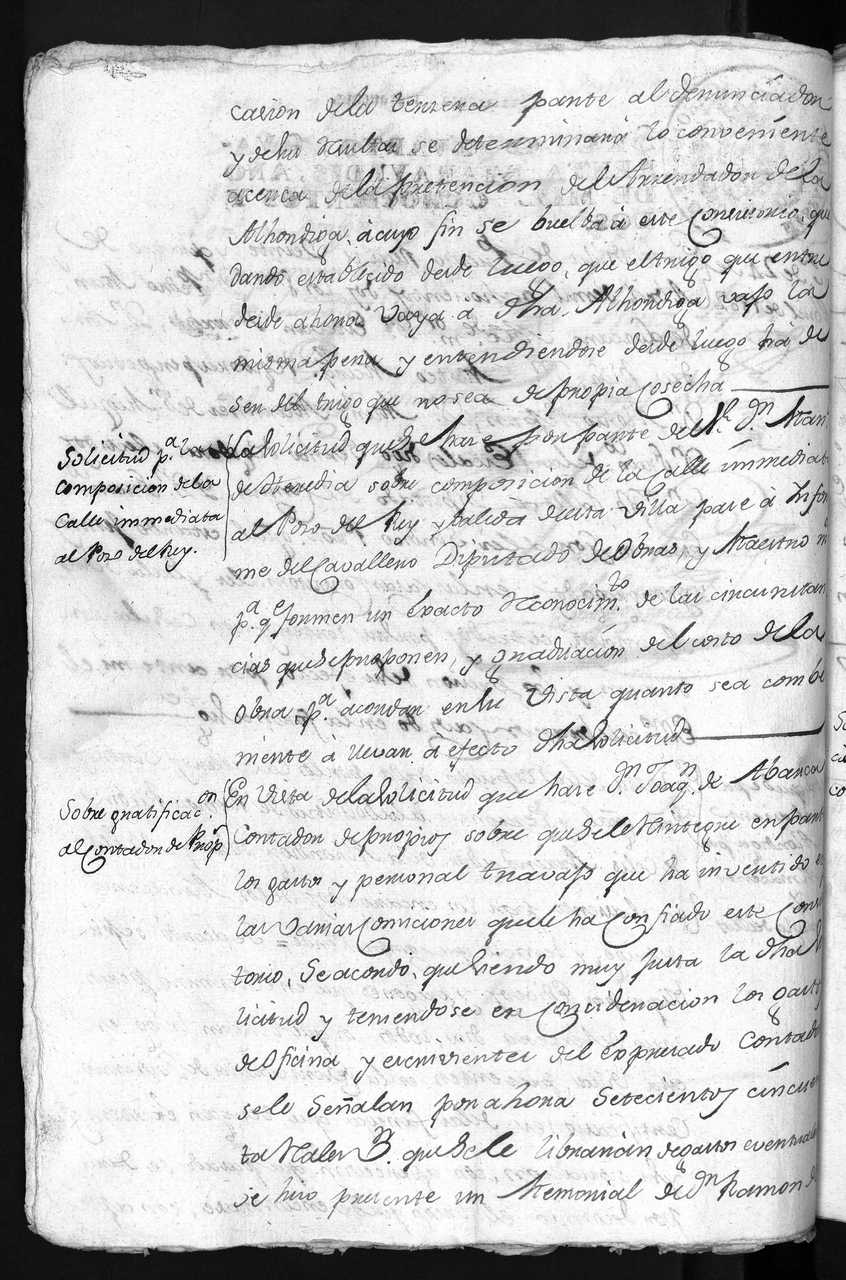 cacion dela terzera parte al denunciador
y desu resultas se determinará lo conveniente
acerca dela pretencion del Arrendador dela
Alhondiga, acuyo fin se buelba à este Concistorio, que
dando establecido desde luego, que el trigo que entre
desde ahora vaya a dha. Alhondiga vajo la
misma pena y entendiendose desde luego há de
ser del trigo que no sea de propia cosecha
Solicitud p.a la
composicion de la
Calle immediata
al Pozo del Rey.
La solicitud que se hace por parte de D.n
de Heredia sobre composicion de la Calle immediata
al Pozo del Rey y salida desta villa pase à Infor
me del Cavallero Diputado de Obras, y Maestro m
p.a q.e formen un exacto reconocim.to de las circunstan
cias que se proponen, y graduacion del costo de la
obra p.a acordar en su vista quanto sea combe
niente à llevar à efecto dha solicitud
Sobre gratificac.on
al Contador de Prop.s
En vista dela solicitud que hace D.n Joaq.n de Abarca
Contador de propios sobre que se le reintegre en parte
los gastos y personal travajo que ha invertido e
las varias comiciones que le ha confiado este Concis
torio, Se acordó, que siendo muy justa la dha so
licitud y teniendose en concideracion los gastos
de oficina y escrivientes del expresado Contador
se le señalan por ahora setecientos cincuen
ta reales v.n que se le librarán de gastos eventuales
se hizo presente un Memorial de D.n Ramon d